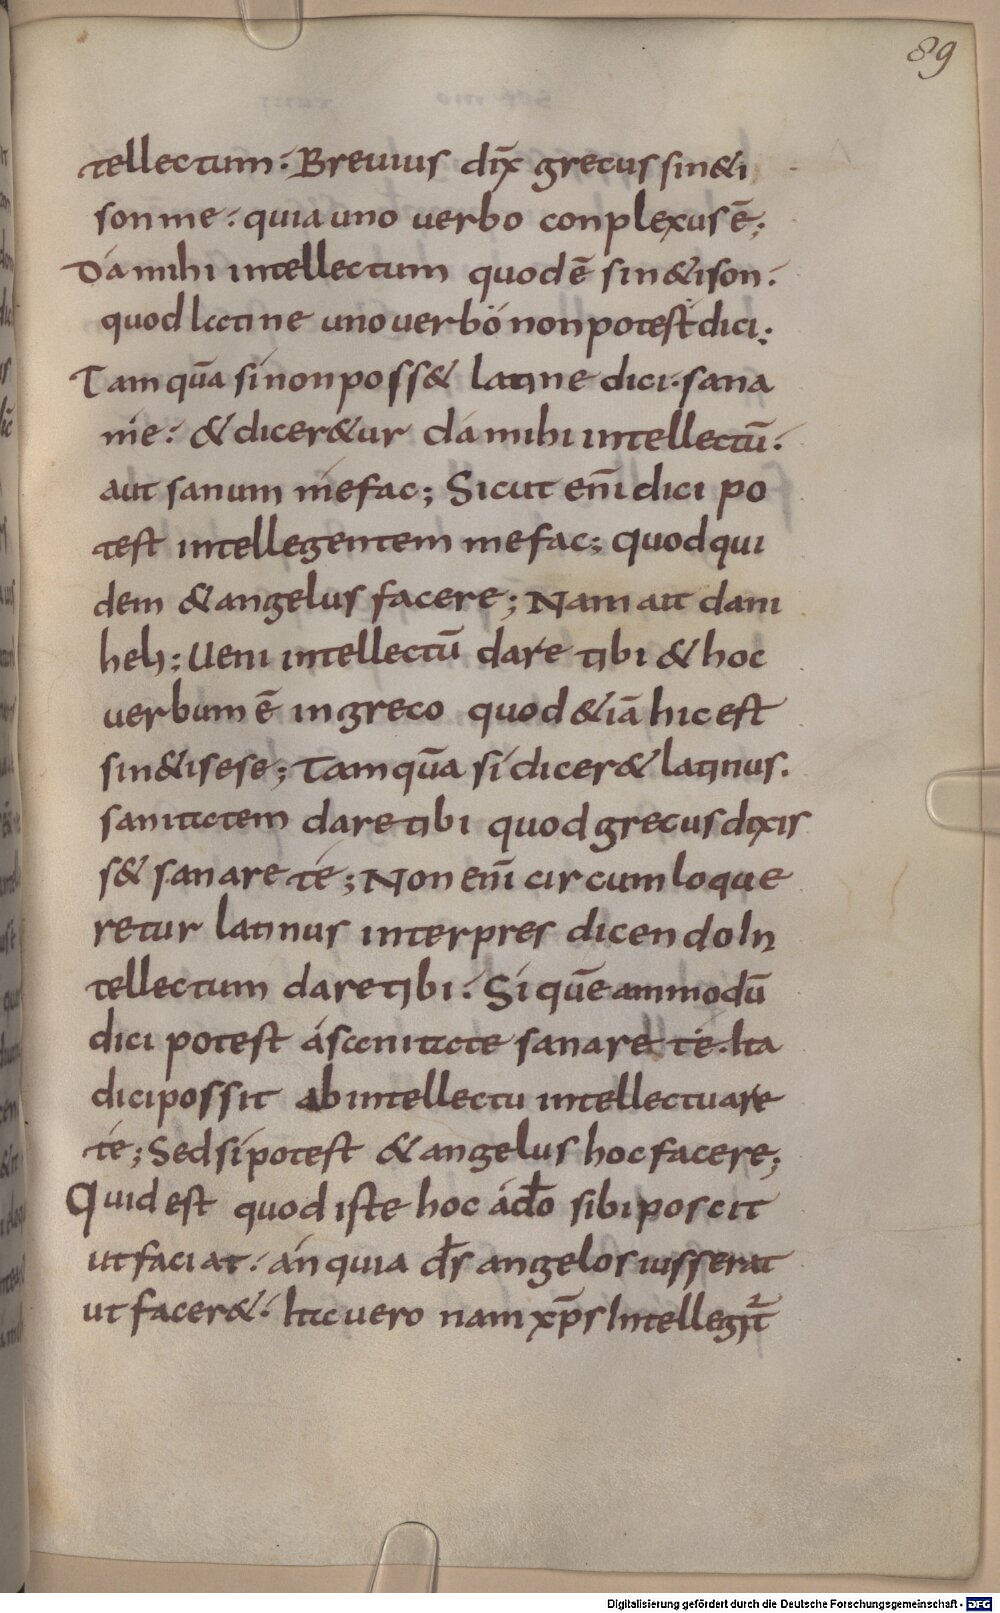 89
tellectum: Breuius dix̄ grecus sin&i
son me: quia uno uerbo conplexus ē;
Da mihi intellectum quod ē sin&ison.
quod lcctine uno uerbo non potest dici;
Tamquā si non poss& latine dici. sana
me: & dicer&ur da mihi intellectū:
aut sanum me fac; Sicut enī dici po
test intellegentem me fac; quod qui
dem & angelus facere; Nam ait dani
heli; Ueni intellectū dare tibi & hoc
uerbum ē in greco quod &iā hic est
sin&isese; Tamquā si dicer& latinus.
sanitctem dare tibi quod grecus dixis
s& sanare te; Non enī circumloque
retur latinus interpres dicendo In
tellectum dare tibi: Si quēammodū
dici potest a scenitcte sanare te. Ita
dici possit ab intellectu intellectuare
te; Sed si potest & angelus hoc facere;
Quid est quod iste hoc a dō sibi poscit
ut faciat: an quia dš angelos iusserat
ut facer&: Itcc uero nam xp̄s Intellegit̄
Digitalisierung gefördert durch die Deutsche Forschungsgemeinschaft - DFG